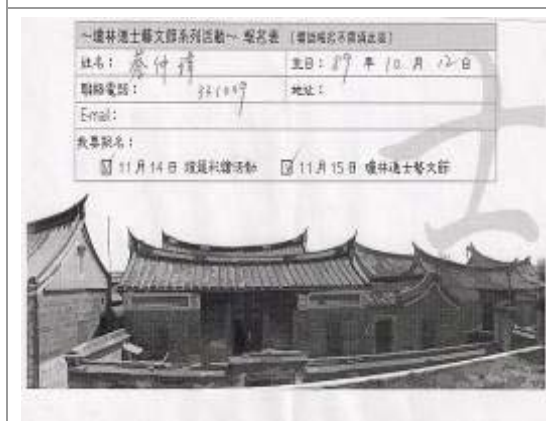 ~瓊林進士藝文節系列活動~ 報名表 (電話報名不需填此區)
姓名: 蔡仲瑋 生日: 89 年 10 月 12 日
聯絡電話: 331009 地址:
E-mail:
我要報名:
☑ 11月14日 彩繪活動 ☑ 11月15日 瓊林進士藝文節
士